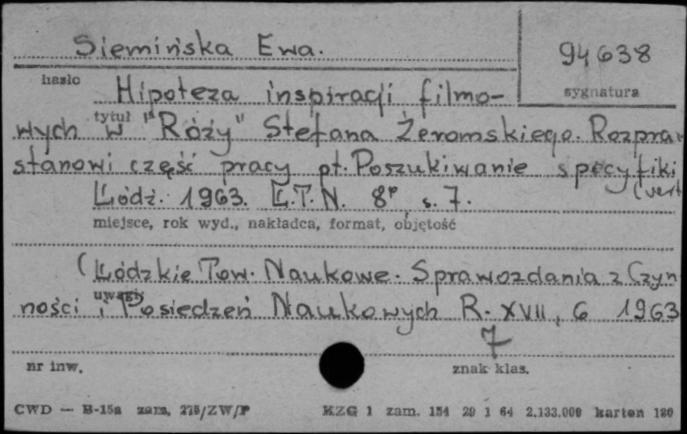 Siemińska Ewa.
94638
hasło
sygnatura
Hipoteza inspiracji filmo-
tytuł
wych w "Róży" Stefana Żeromskiego. Rozpra
stanowi część pracy pt. Poszukiwanie specyfiki
(vert
Łódź. 1963. Ł.T.N. 8° s. 7.
miejsce, rok wyd., nakładca, format, objętość
(Łódzkie Tow. Naukowe. Sprawozdania z Czyn
uwagi
ności i Posiedzeń Naukowych R. XVII, 6 1963
7
nr inw.
znak klas.
CWD — B-15a zam. 275/ZW/P KZG 1 zam. 154 29 1 64 2.133.000 karton 180